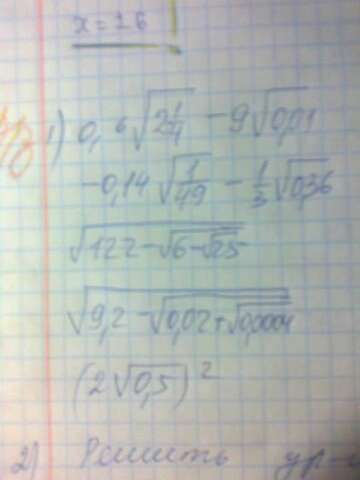 x = 16
1) 0,6√(2 1/4) - 9√(0,01)
-0,14√(1/49) - 1/3√(0,36)
√(122-√(6-√25))
√(9,2-√(0,02+√(0,0004)))
(2√(0,5))²
2) Решить ур-